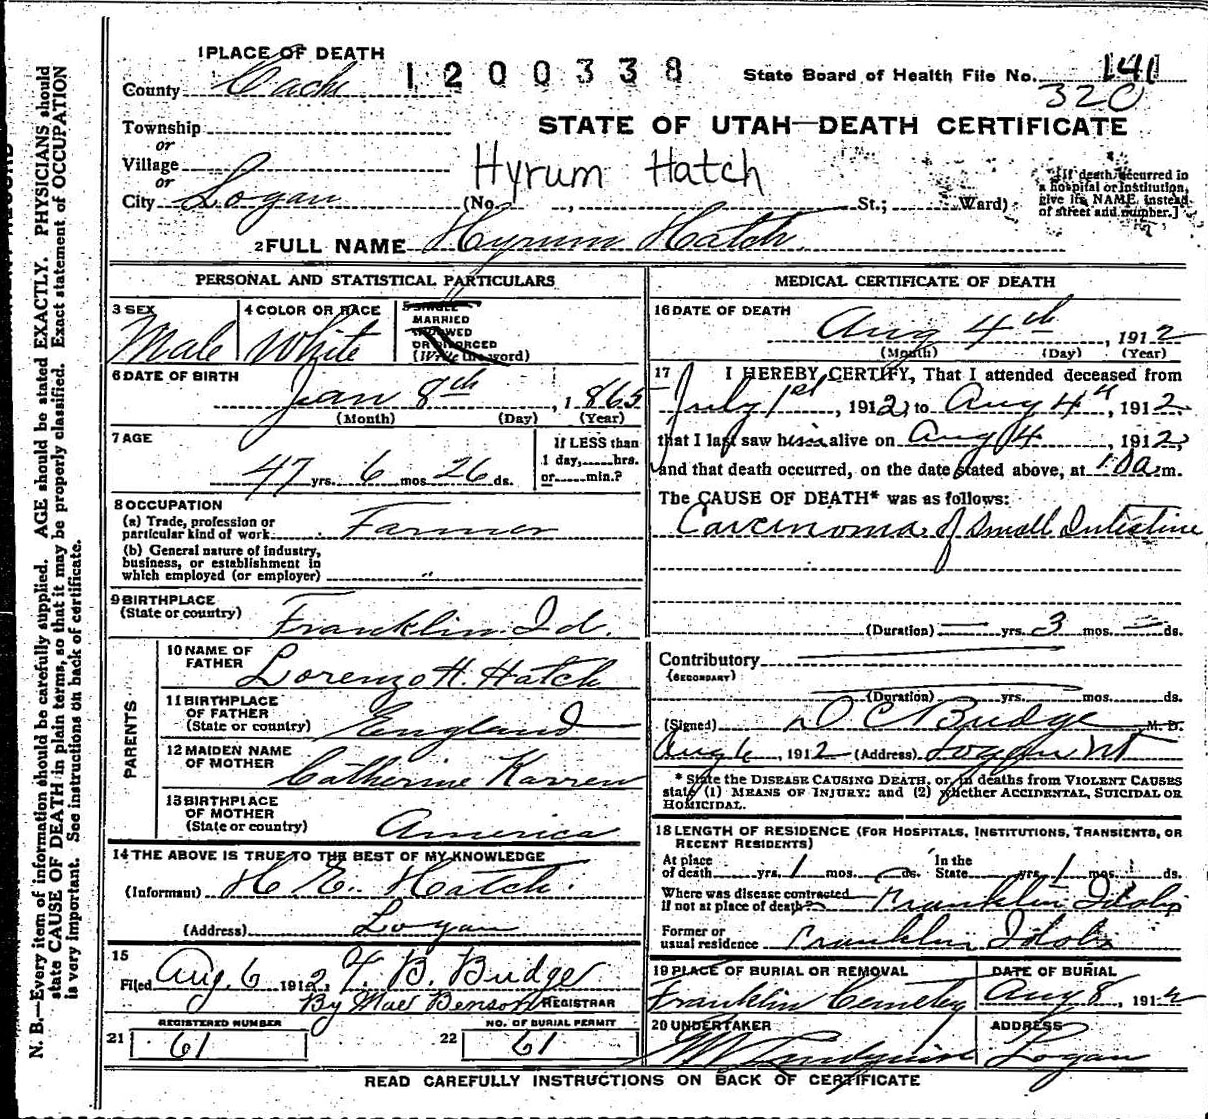 1 PLACE OF DEATH
1200338
State Board of Health File No. 141
320
County Cache
STATE OF UTAH—DEATH CERTIFICATE
Township
or
Village
or
City Logan
Hyrum Hatch
(No. , St.; Ward)
[If death occurred in
a hospital or institution,
give its NAME instead
of street and number.]
2 FULL NAME Hyrum Hatch
PERSONAL AND STATISTICAL PARTICULARS
3 SEX
Male
4 COLOR OR RACE
White
5 SINGLE
MARRIED
WIDOWED
OR DIVORCED
(Write the word)
6 DATE OF BIRTH
Jan 8th, 1865
(Month) (Day) (Year)
7 AGE
47 yrs. 6 mos. 26 ds.
If LESS than
1 day, hrs.
or min.?
8 OCCUPATION
(a) Trade, profession or
particular kind of work Farmer
(b) General nature of industry,
business, or establishment in
which employed (or employer) "
9 BIRTHPLACE
(State or country) Franklin Id.
PARENTS
10 NAME OF
FATHER Lorenzo H. Hatch
11 BIRTHPLACE
OF FATHER
(State or country) England
12 MAIDEN NAME
OF MOTHER Catherine Karren
13 BIRTHPLACE
OF MOTHER
(State or country) America
14 THE ABOVE IS TRUE TO THE BEST OF MY KNOWLEDGE
(Informant) H. E. Hatch.
(Address) Logan
15
Filed Aug. 6 1912, T. B. Budge
By Mae Benson REGISTRAR
REGISTERED NUMBER
21 61
NO. OF BURIAL PERMIT
22 61
MEDICAL CERTIFICATE OF DEATH
16 DATE OF DEATH
Aug 4th, 1912
(Month) (Day) (Year)
17 I HEREBY CERTIFY, That I attended deceased from
July 1st, 1912, to Aug 4", 1912,
that I last saw him alive on Aug 4, 1912,
and that death occurred, on the date stated above, at 1 30 a.m.
The CAUSE OF DEATH* was as follows:
Carcinoma of Small Intestine
(Duration) — yrs. 3 mos. — ds.
Contributory
(SECONDARY)
(Duration) yrs. mos. ds.
(Signed) D C Budge M. D.
Aug 6, 1912 (Address) Logan Ut
* State the DISEASE CAUSING DEATH, or, in deaths from VIOLENT CAUSES
state (1) MEANS OF INJURY; and (2) whether ACCIDENTAL, SUICIDAL OR
HOMICIDAL.
18 LENGTH OF RESIDENCE (FOR HOSPITALS, INSTITUTIONS, TRANSIENTS, OR
RECENT RESIDENTS)
At place
of death yrs. 1 mos. ds.
In the
State yrs. 1 mos. ds.
Where was disease contracted
If not at place of death? Franklin Idaho
Former or
usual residence Franklin Idaho
19 PLACE OF BURIAL OR REMOVAL
Franklin Cemetery
DATE OF BURIAL
Aug 8, 1912
20 UNDERTAKER
Lindquist
ADDRESS
Logan
READ CAREFULLY INSTRUCTIONS ON BACK OF CERTIFICATE
N. B.—Every item of information should be carefully supplied. AGE should be stated EXACTLY. PHYSICIANS should
state CAUSE OF DEATH in plain terms, so that it may be properly classified. Exact statement of OCCUPATION
is very important. See instructions on back of certificate.